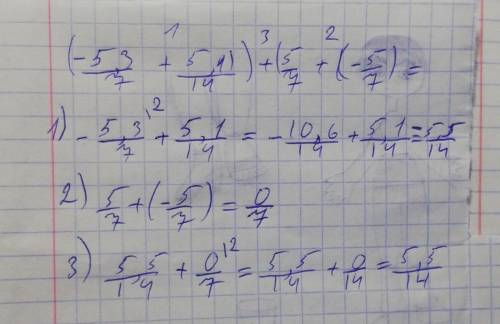 (-5,3/7 +¹ 5,1/14) +³ (5/7 +² (-5/7) =
1) - 5,3/7 \² + 5,1/14 = - 10,6/14 + 5,1/14 = 5,5/14
2) 5/7 + (-5/7) = 0/7
3) 5,5/14 + 0/7 \² = 5,5/14 + 0/14 = 5,5/14